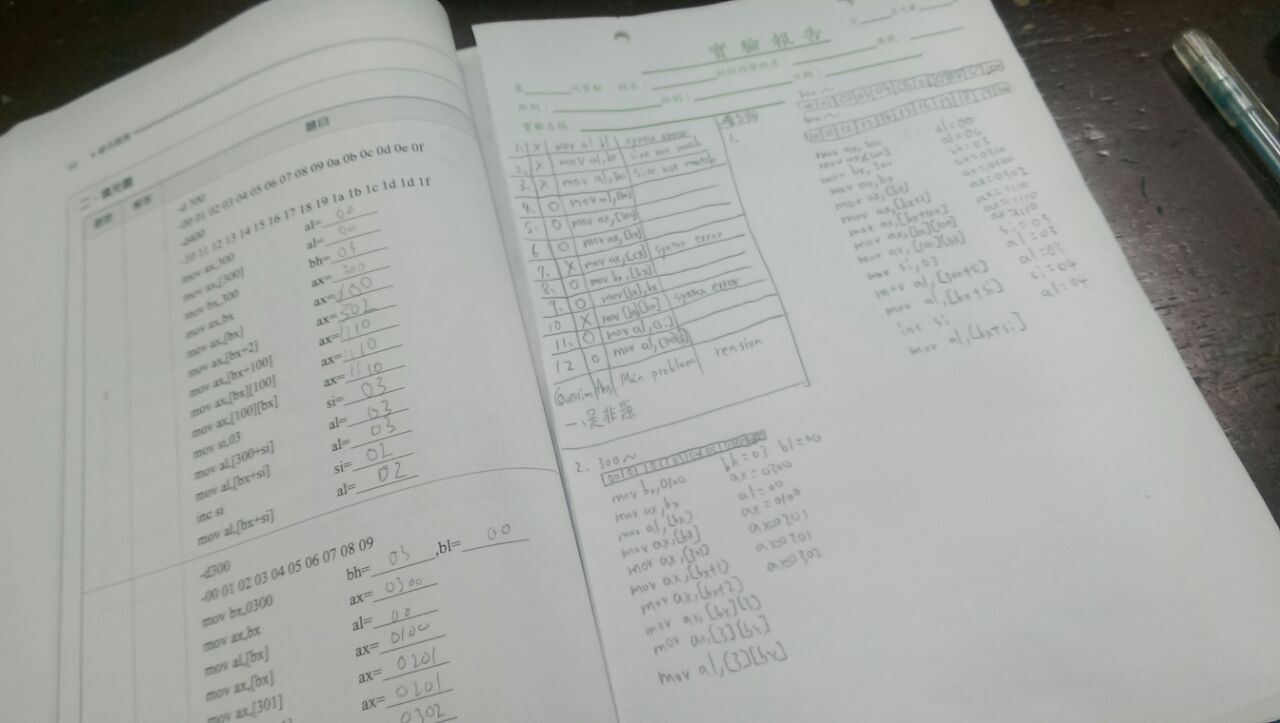 二、填充題
題號
答案
題目
-d 300
-00 01 02 03 04 05 06 07 08 09 0a 0b 0c 0d 0e 0f
-d400
-10 11 12 13 14 15 16 17 18 19 1a 1b 1c 1d 1d 1f
mov ax,300 al= 00
mov ax,[300] al= 00
mov bx,300 bh= 03
mov ax,bx ax= 300
mov ax,[bx] ax= 100
mov ax,[bx+2] ax= 502
mov ax,[bx+100] ax= 1110
mov ax,[bx][100] ax= 1110
mov ax,[100][bx] ax= 1110
mov si,03 si= 03
mov al,[300+si] al= 03
mov al,[bx+si] al= 03
inc si si= 02
mov al,[bx+si] al= 02
-d300
-00 01 02 03 04 05 06 07 08 09
mov bx,0300 bh= 03 ,bl= 00
mov ax,bx ax= 0300
mov al,[bx] al= 00
mov ax,[bx] ax= 0100
mov ax,[301] ax= 0201
ax= 0201
0302
實驗報告
實驗名稱:
1. X mov al bl syntax error
2. X mov al,bx size not match
3. X mov al,300 Size not match
4. O mov al,[300]
5. O mov ax,[300]
6 O mov ax,[bx]
7. X mov ax,[cx] syntax error
8. O mov bx,[bx]
9. O mov [bx],bx
10 X mov [bx][bx] syntax error
11. O mov al,[si]
12 O
Main problem reasion
一、是非題
2、 300~
mov bx,0300 bh=03 bl=00
mov ax,bx ax=0300
mov al,[bx] al=00
mov ax,[bx] ax=0100
mov ax,[301] ax=0201
mov ax,[bx+1] ax=0201
mov ax,[bx+2] ax=0302
mov ax,[bx][3]
mov ax,[3][bx]
mov al,[3][bx]
1.
300~
400~
mov ax,300 al=00
mov ax,[300]
mov bx,300 bh=03
mov ax,bx ax=0300
mov ax,[bx] ax=0100
mov ax,[bx+2] ax=0302
mov ax,[bx+100] ax=1110
mov ax,[bx][100] ax=1110
mov ax,[100][bx] ax=1110
mov si,03 si=03
mov al,[300+si] al=03
mov al,[bx+si] al=03
inc si si=04
mov al,[bx+si] al=04